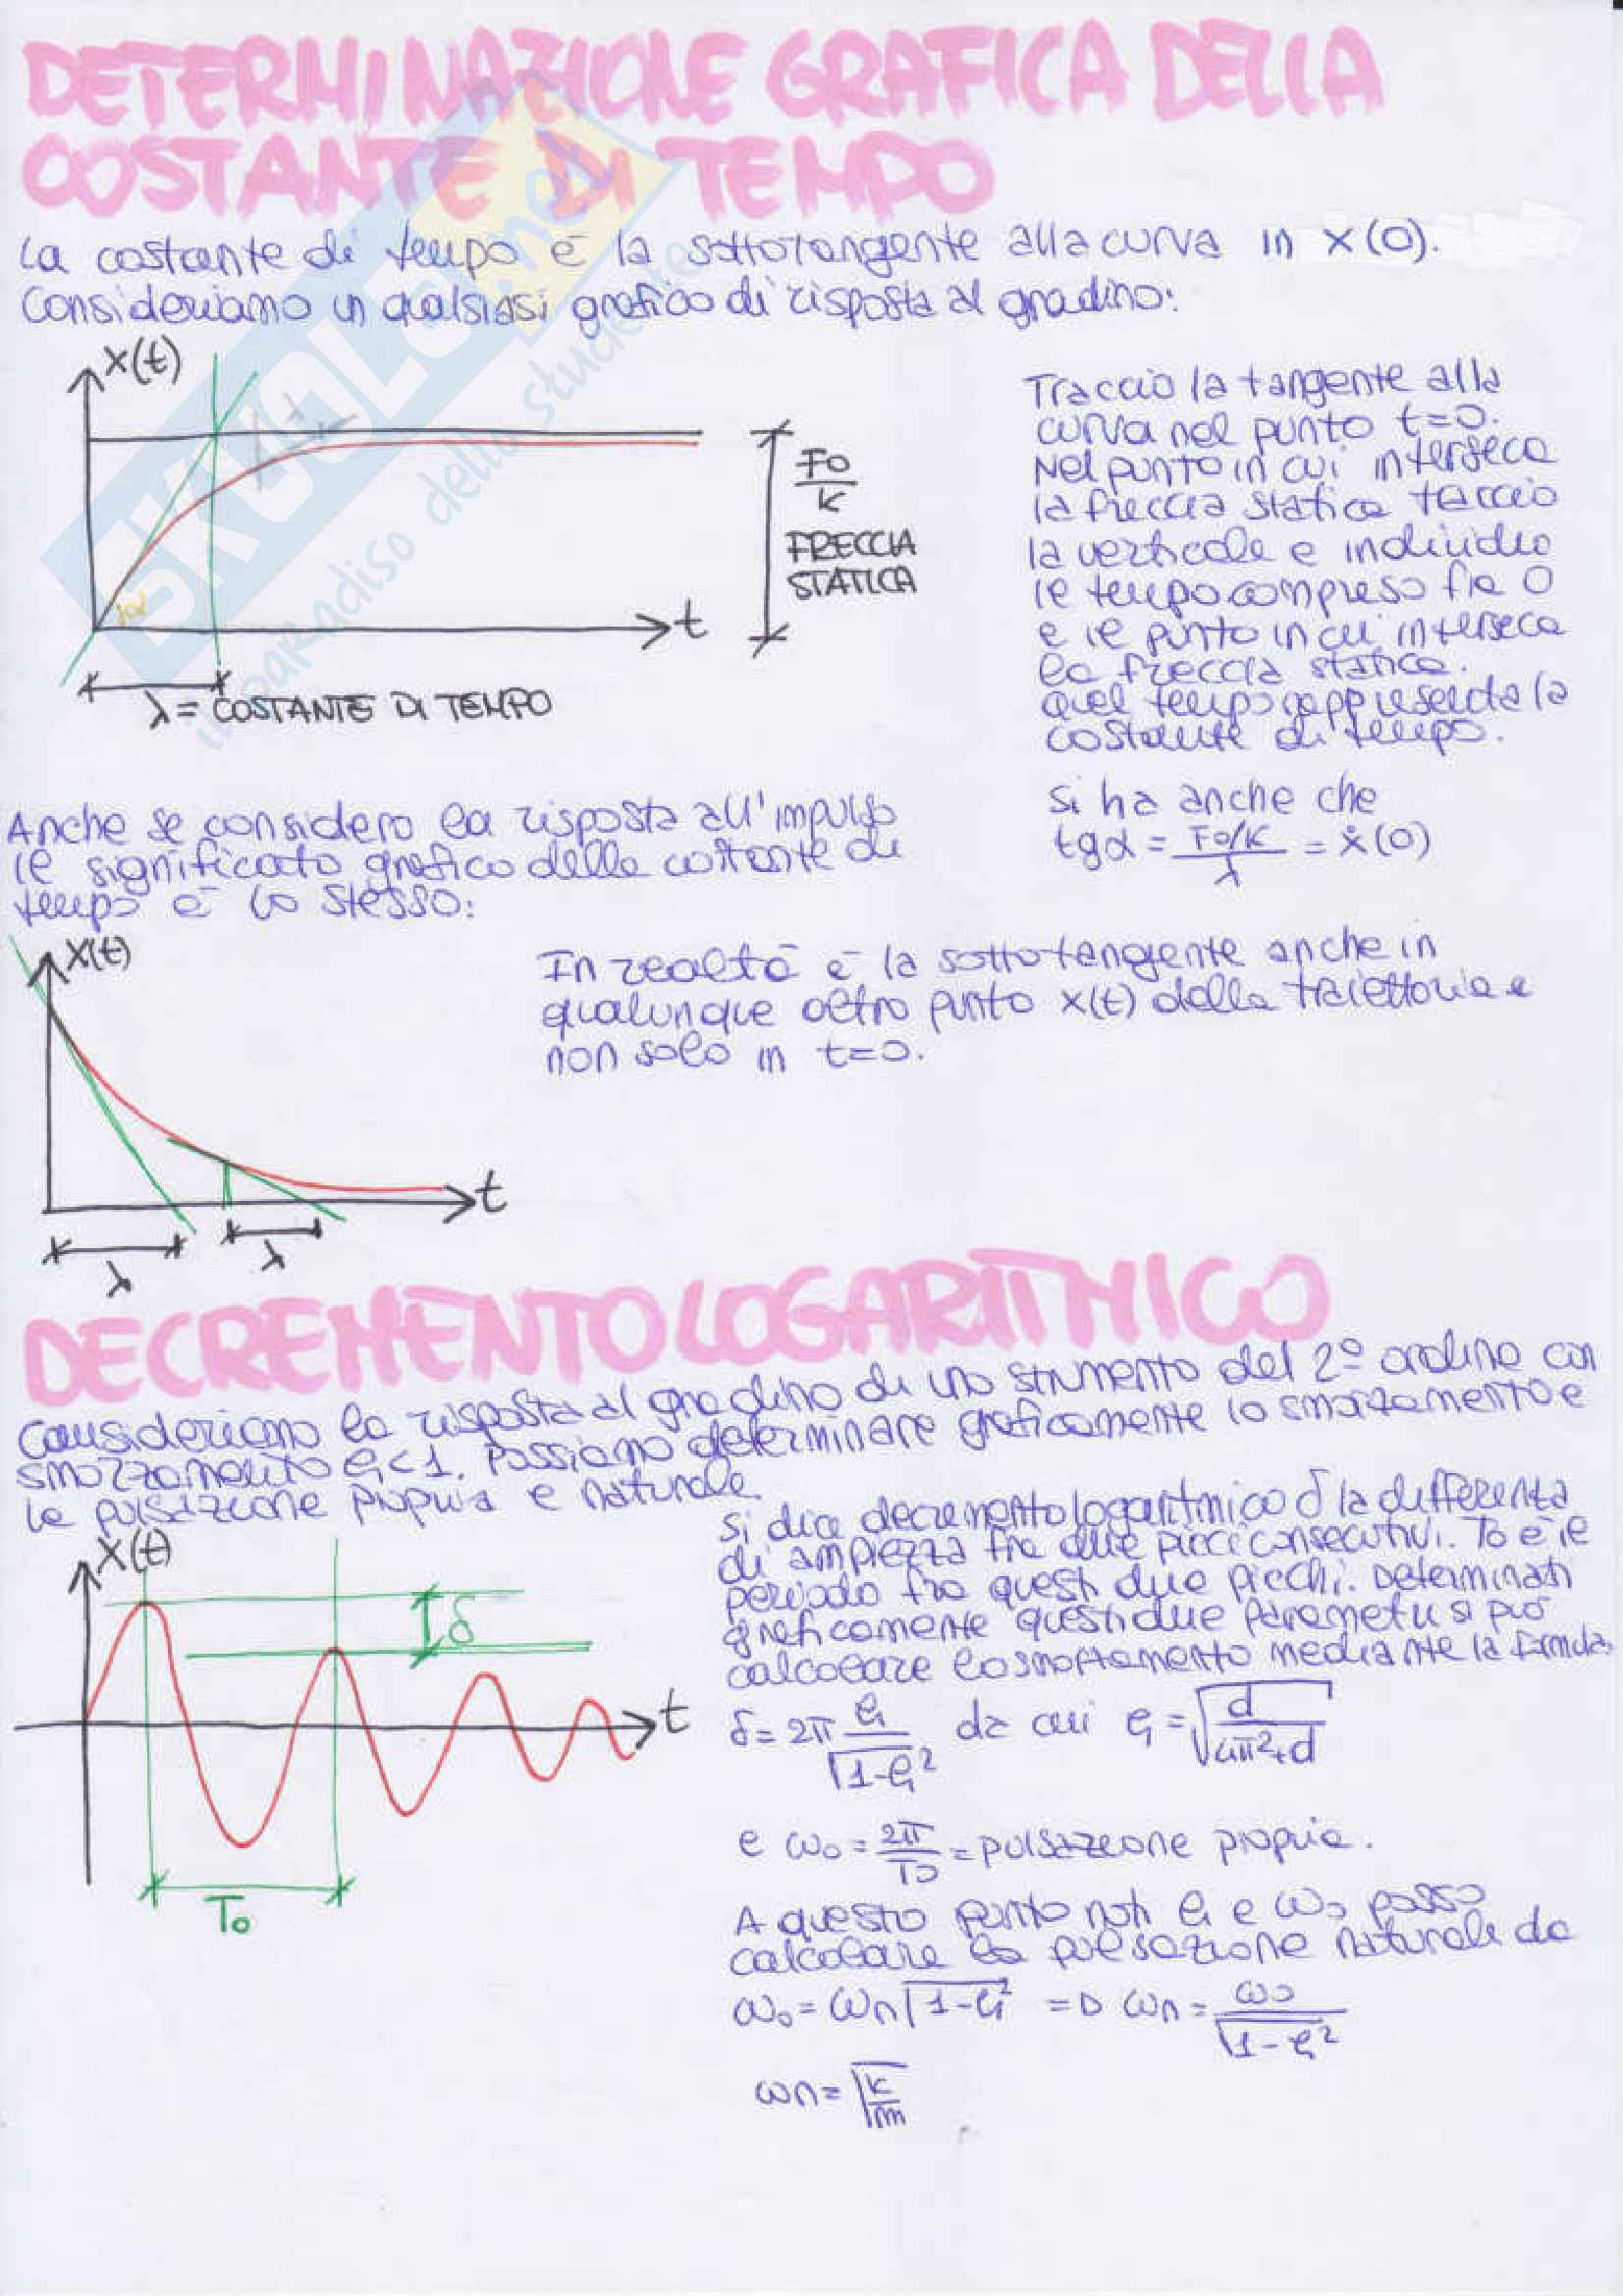 DETERMINAZIONE GRAFICA DELLA
COSTANTE DI TEMPO
La costante di tempo è la sottotangente alla curva in x(0).
Consideriamo un qualsiasi grafico di risposta al gradino:
x(t)
Traccio la tangente alla
curva nel punto t=0.
Nel punto in cui interseca
la freccia statica traccio
la verticale e individuo
il tempo compreso fra 0
e il punto in cui interseca
la freccia statica.
quel tempo rappresenta la
costante di tempo.
F0/K
FRECCIA
STATICA
α
t
λ = COSTANTE DI TEMPO
si ha anche che
tgα = (F0/K)/λ = ẋ(0)
Anche se considero la risposta all'impulso
il significato grafico della costante di
tempo è lo stesso:
x(t)
In realtà è la sottotangente anche in
qualunque altro punto x(t) della traiettoria e
non solo in t=0.
t
λ
λ
DECREMENTO LOGARITMICO
Consideriamo la risposta al gradino di uno strumento del 2º ordine con
smorzamento ξ<1. Possiamo determinare graficamente lo smorzamento e
la pulsazione propria e naturale.
x(t)
Si dice decremento logaritmico δ la differenza
di ampiezza fra due picchi consecutivi. T0 è il
periodo fra questi due picchi. Determinati
graficamente questi due parametri si può
calcolare lo smorzamento mediante la formula
δ
t
T0
δ = 2π ξ/√(1-ξ²) da cui ξ = √(d/(4π²+d))
e ω0 = 2π/T0 = pulsazione propria.
A questo punto noti ξ e ω0 posso
calcolare la pulsazione naturale da
ω0 = ωn √(1-ξ²) => ωn = ω0/√(1-ξ²)
ωn = √(k/m)
SKUOLA.net
il paradiso dello studente